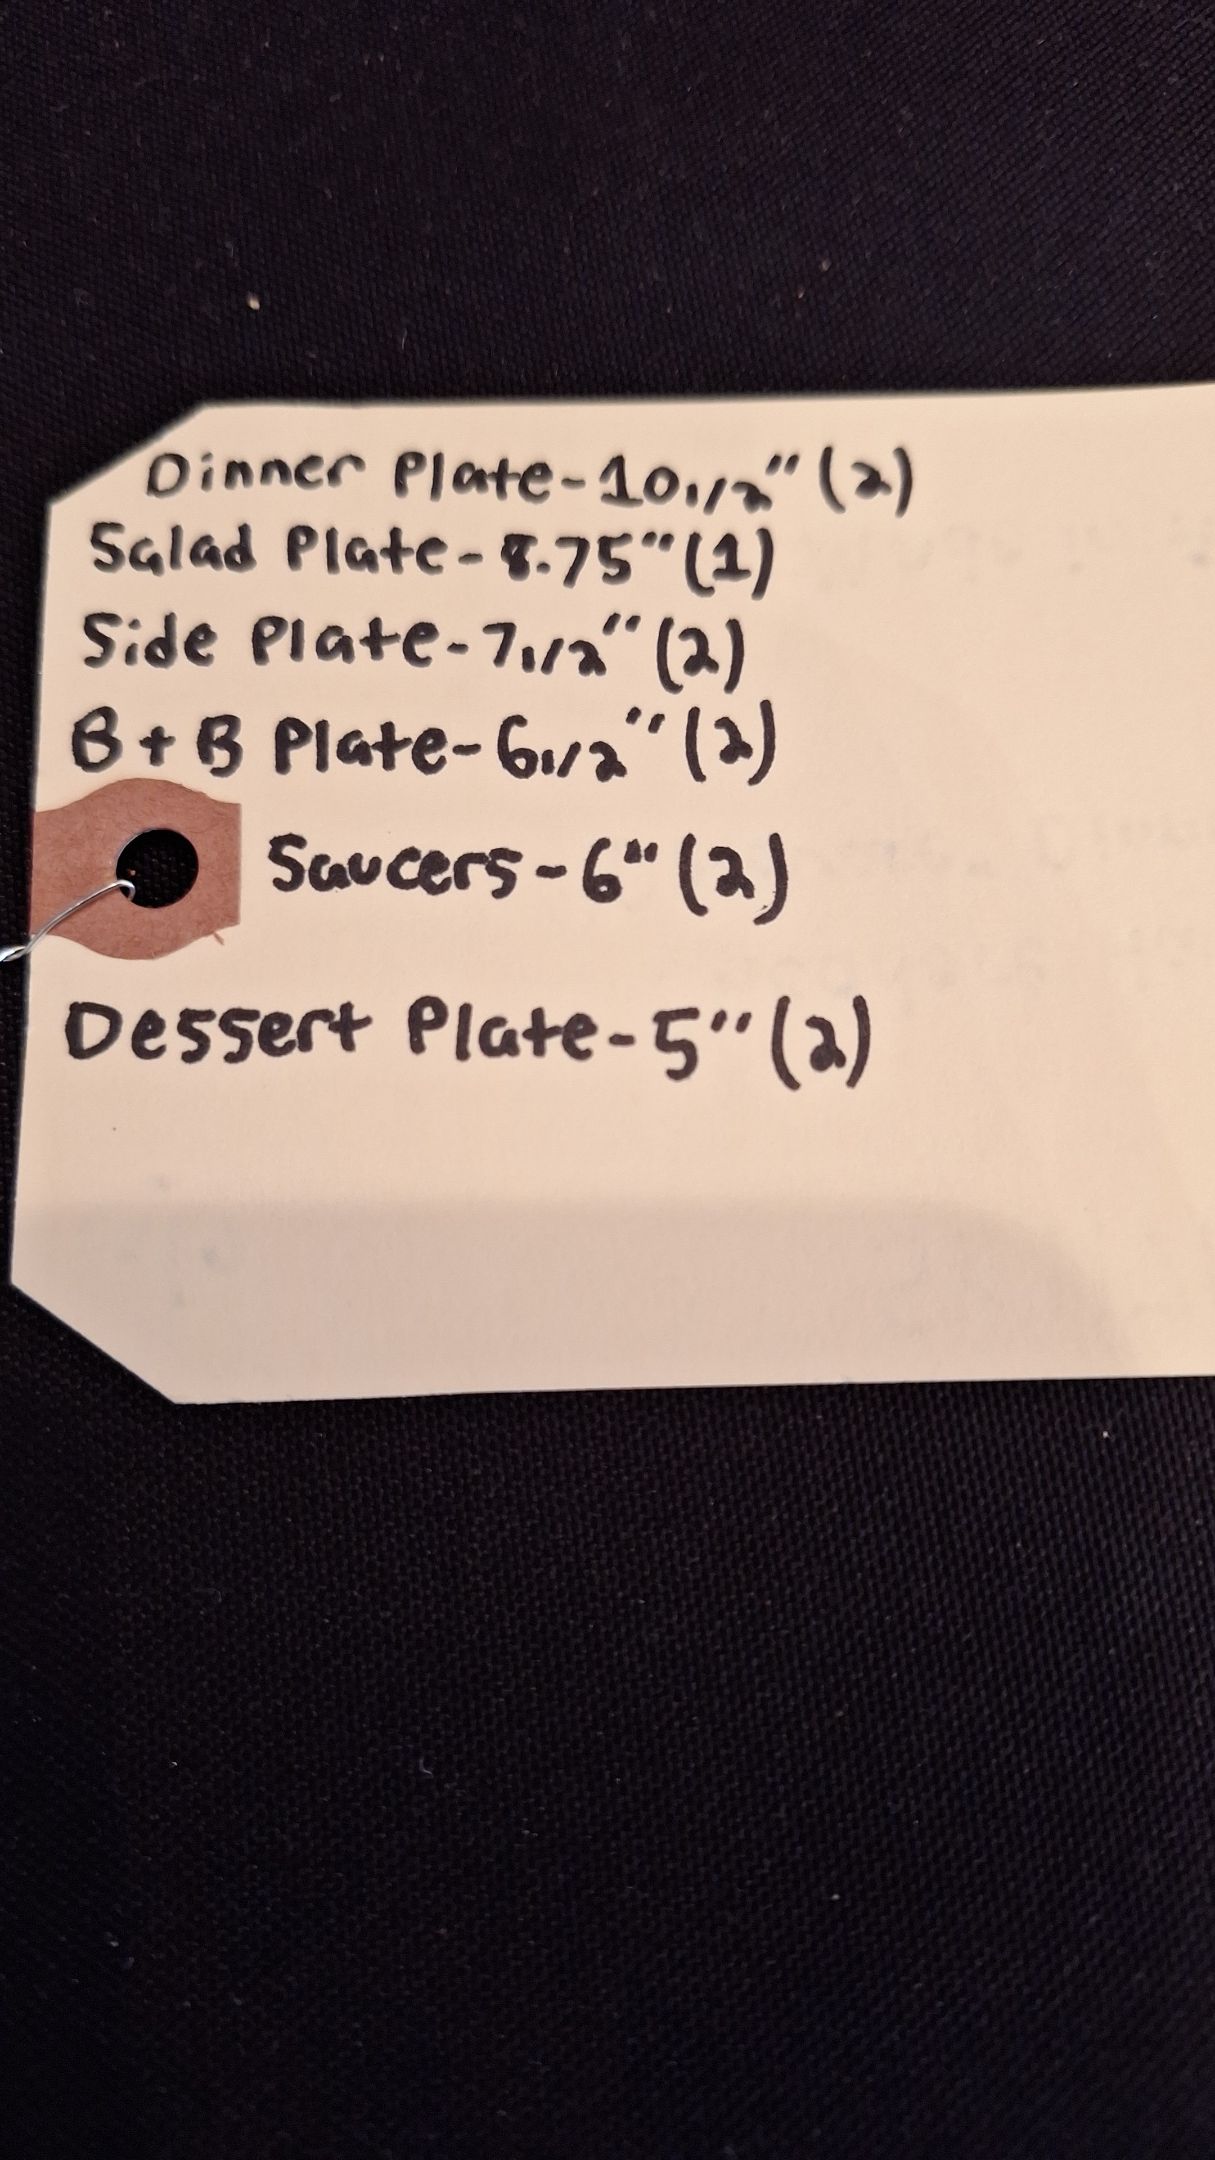 Dinner Plate-10 1/2" (2)
Salad Plate-8.75" (1)
Side Plate-7 1/2" (2)
B+B Plate-6 1/2" (2)
Saucers-6" (2)
Dessert Plate-5" (2)